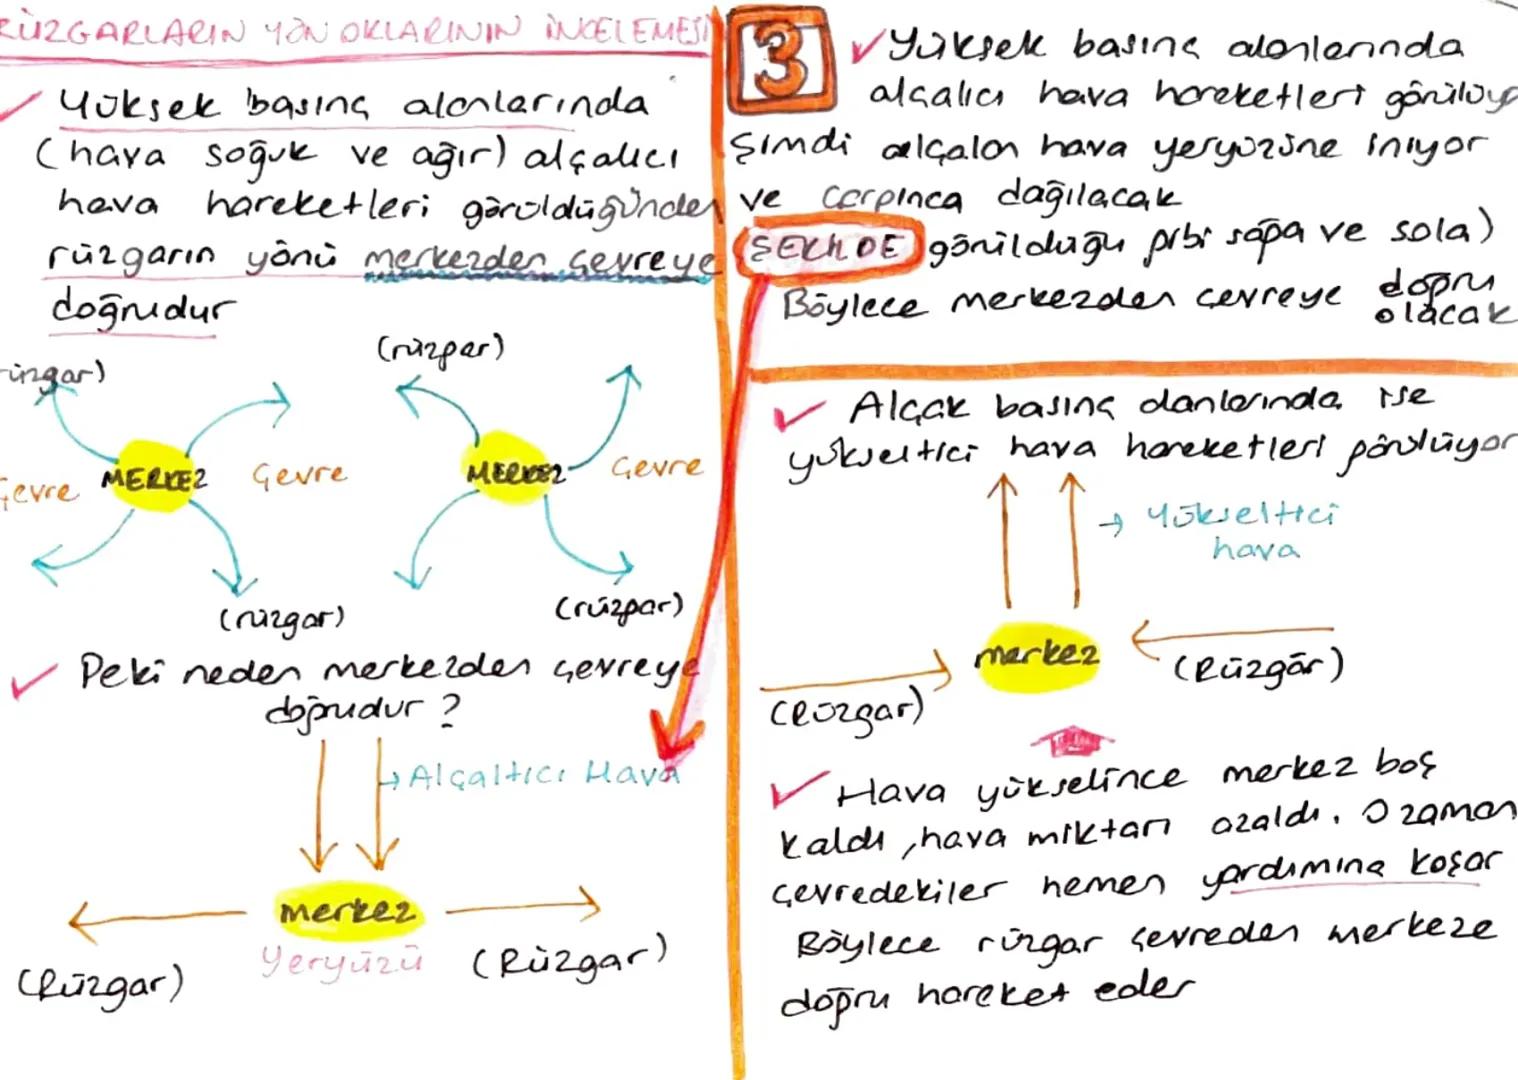 RÜZGARLARIN YÖN OKLARININ İNCELEMESİ
Yüksek basınç alanlarında
(hava soğuk ve ağır) alçalıcı
hava hareketleri görüldüğünden
rüzgarın yönü merkezden çevreye
doğrudur
(rüzgar)
üzgar)
MERKEZ
Çevre
MERKEZ
Çevre
Çevre
(rüzgar)
(rüzgar)
Peki neden merkezden çevreye
doğrudur ?
→ Alçaltıcı Hava
merkez
Yeryüzü
(Rüzgar)
(Rüzgar)
3
Yüksek basınç alanlarında
alçalıcı hava hareketleri görülüyo
Şimdi alçalan hava yeryüzüne iniyor
ve çarpınca dağılacak
ŞEKİLDE görüldüğü gibi sağa ve sola)
Böylece merkezden çevreye doğru
olacak
Alçak basınç alanlarında ise
yükseltici hava hareketleri görülüyor
→ Yükseltici
hava
merkez
(Rüzgar)
(Rüzgar)
Hava yükselince merkez boş
kaldı, hava miktarı azaldı. O zaman
çevredekiler hemen yardımına koşar
Böylece rüzgar çevreden merkeze
doğru hareket eder